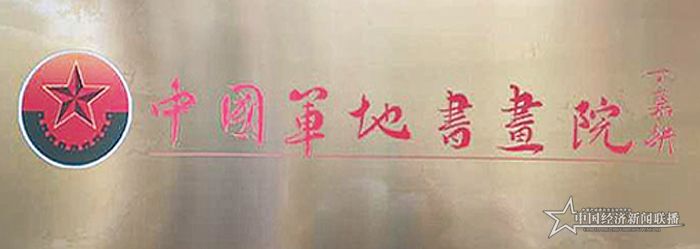 中國軍地書畫院
丁嘉耕
中国经济新闻联播